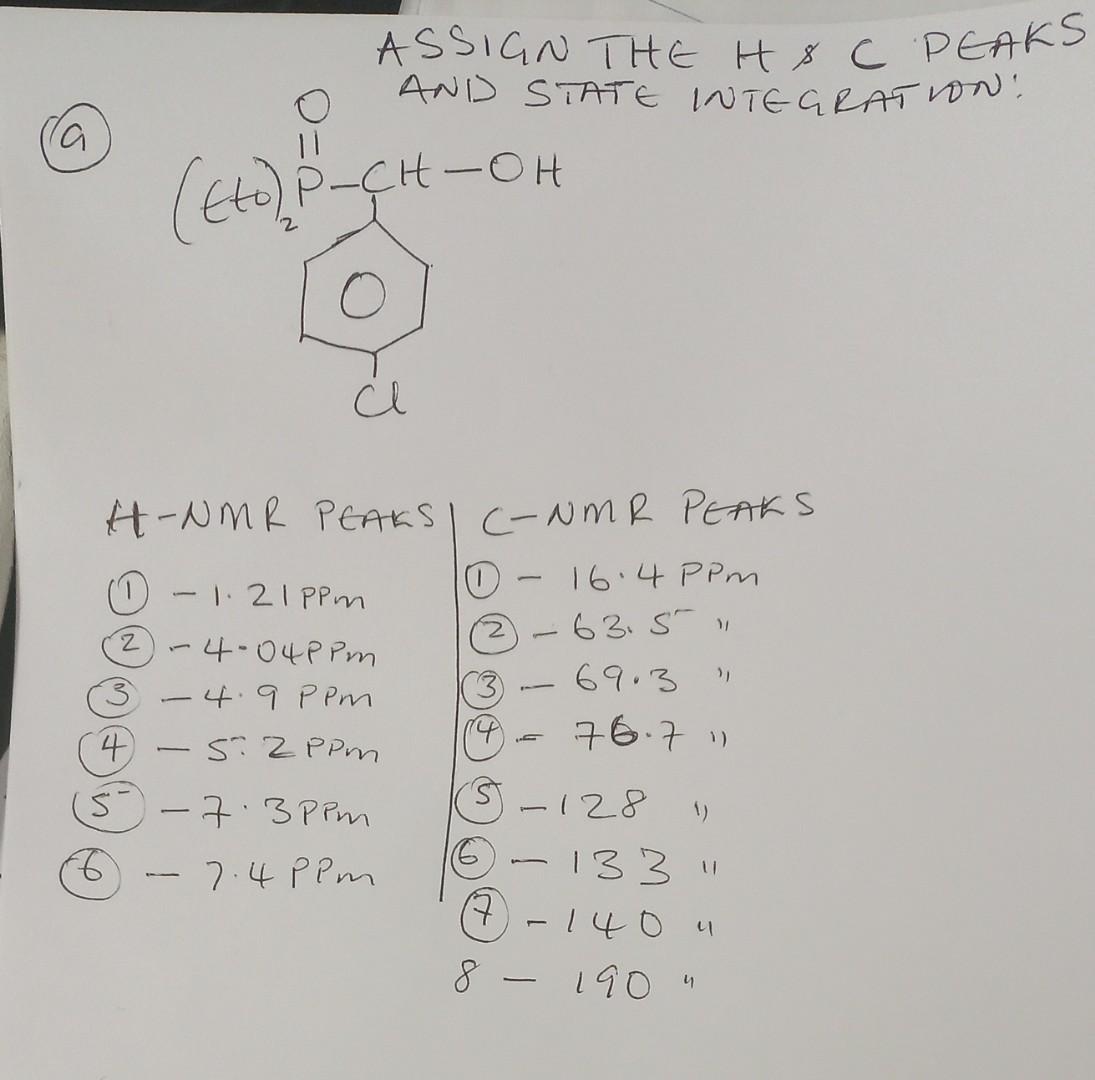 ASSIGN THE H & C PEAKS
AND STATE INTEGRATION:
(a)
O
(EtO)2P-CH-OH
Cl
H-NMR PEAKS | C-NMR PEAKS
① - 1.21 PPm
② - 4.04 PPm
③ - 4.9 PPm
④ - 5.2 PPm
⑤ - 7.3 PPm
⑥ - 7.4 PPm
① - 16.4 PPm
② - 63.5 "
③ - 69.3 "
④ - 76.7 "
⑤ - 128 "
⑥ - 133 "
⑦ - 140 "
8 - 190 "